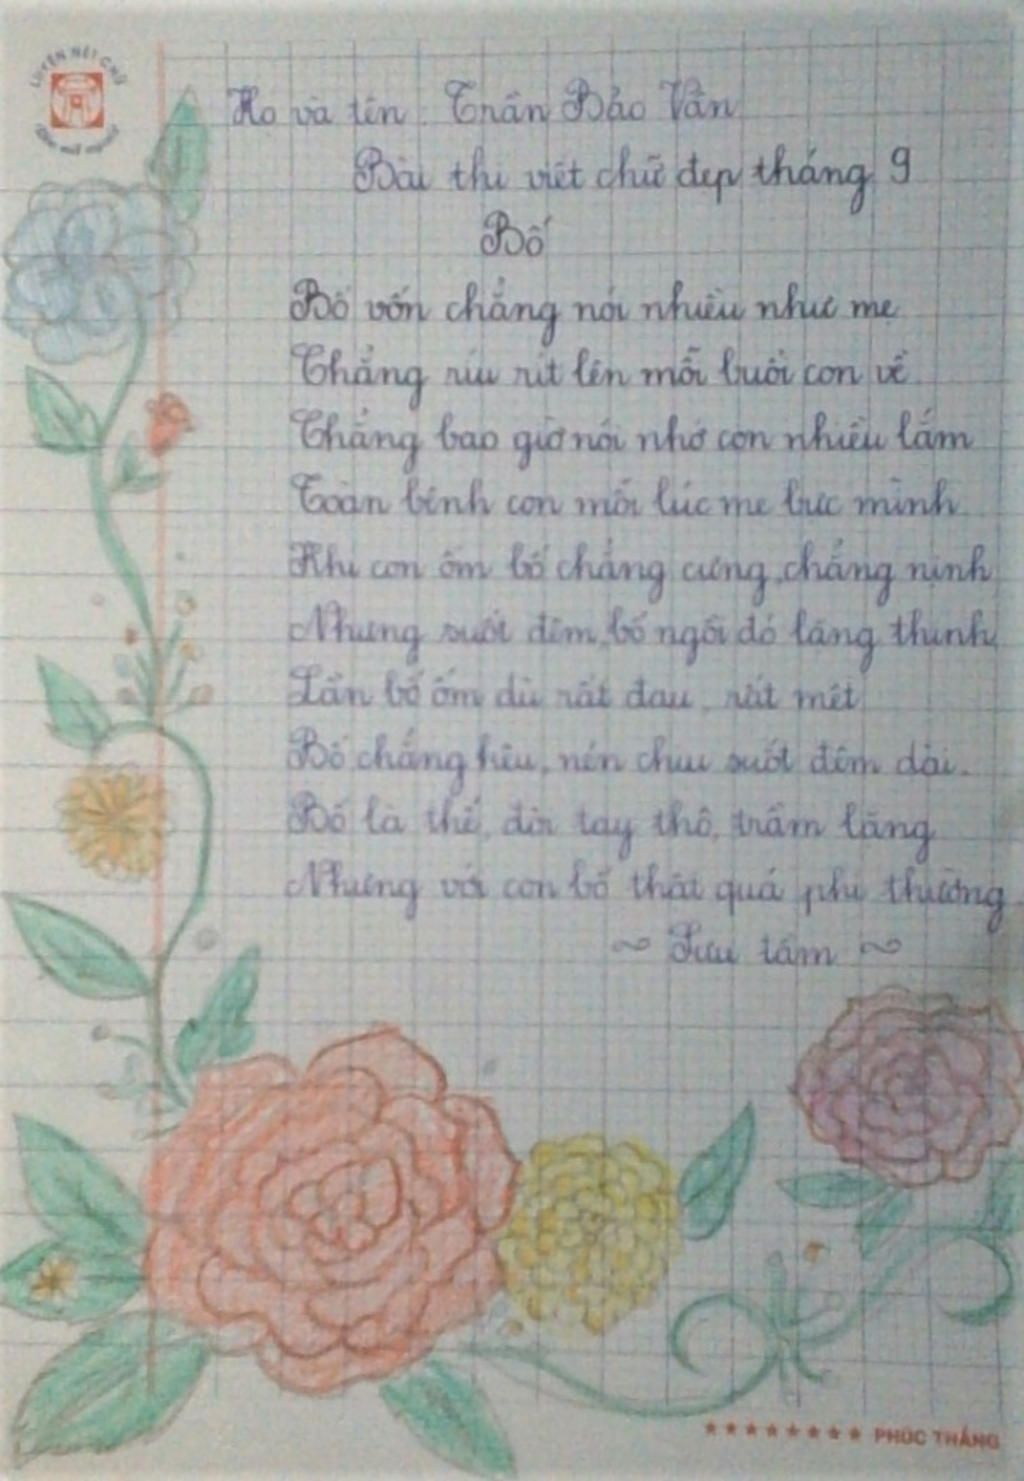 LUYỆN NÉT CHỮ
Họ và tên: Trần Bảo Vân
Bài thi viết chữ đẹp tháng 9
Bố
Bố vốn chẳng nói nhiều như mẹ
Chẳng ríu rít lên mỗi buổi con về
Chẳng bao giờ nói nhớ con nhiều lắm
Toàn bênh con mỗi lúc mẹ bực mình
Khi con ốm bố chẳng cưng, chẳng nịnh
Nhưng suốt đêm, bố ngồi đó lặng thinh
Lần bố ốm dù rất đau, rất mệt
Bố chẳng kêu, nén chịu suốt đêm dài.
Bố là thế, đôi tay thô, trầm lặng
Nhưng với con bố thật quá phi thường
~ Sưu tầm ~
★★★★★★★★ PHÚC THẮNG